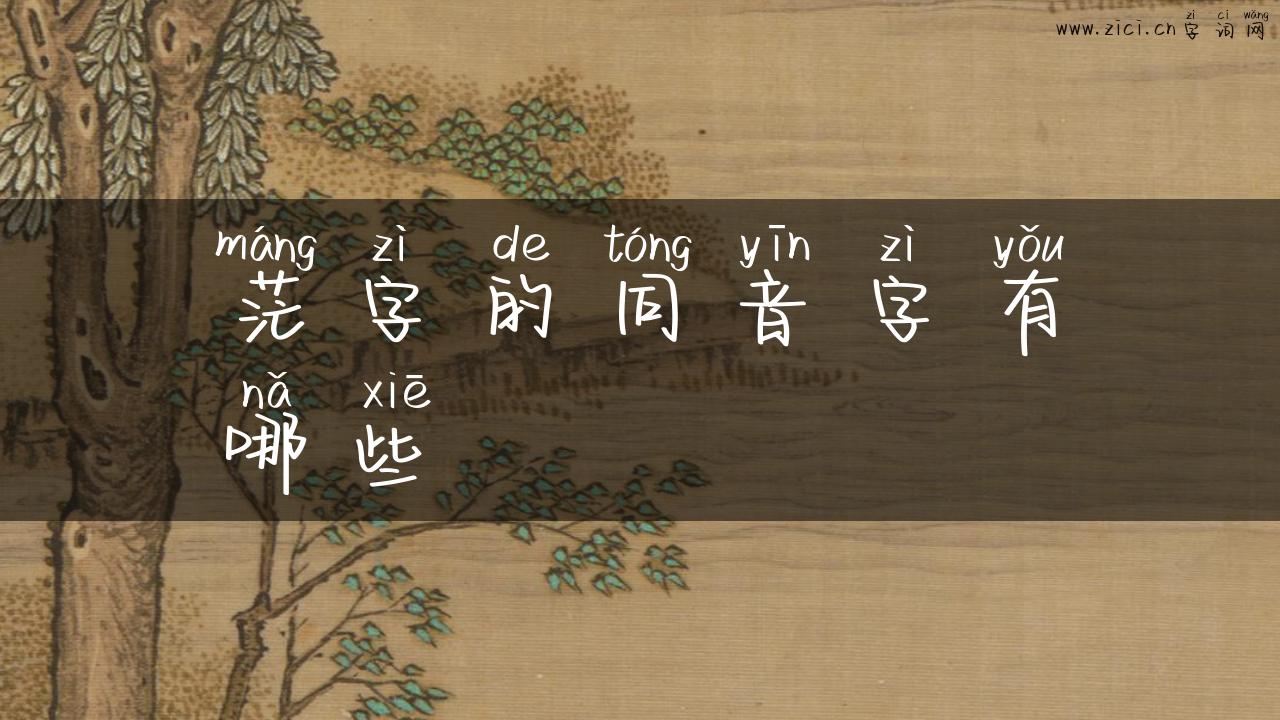 zì cí wǎng
www.zici.cn 字词网
máng zì de tóng yīn zì yǒu
茫字的同音字有
nǎ xiē
哪些